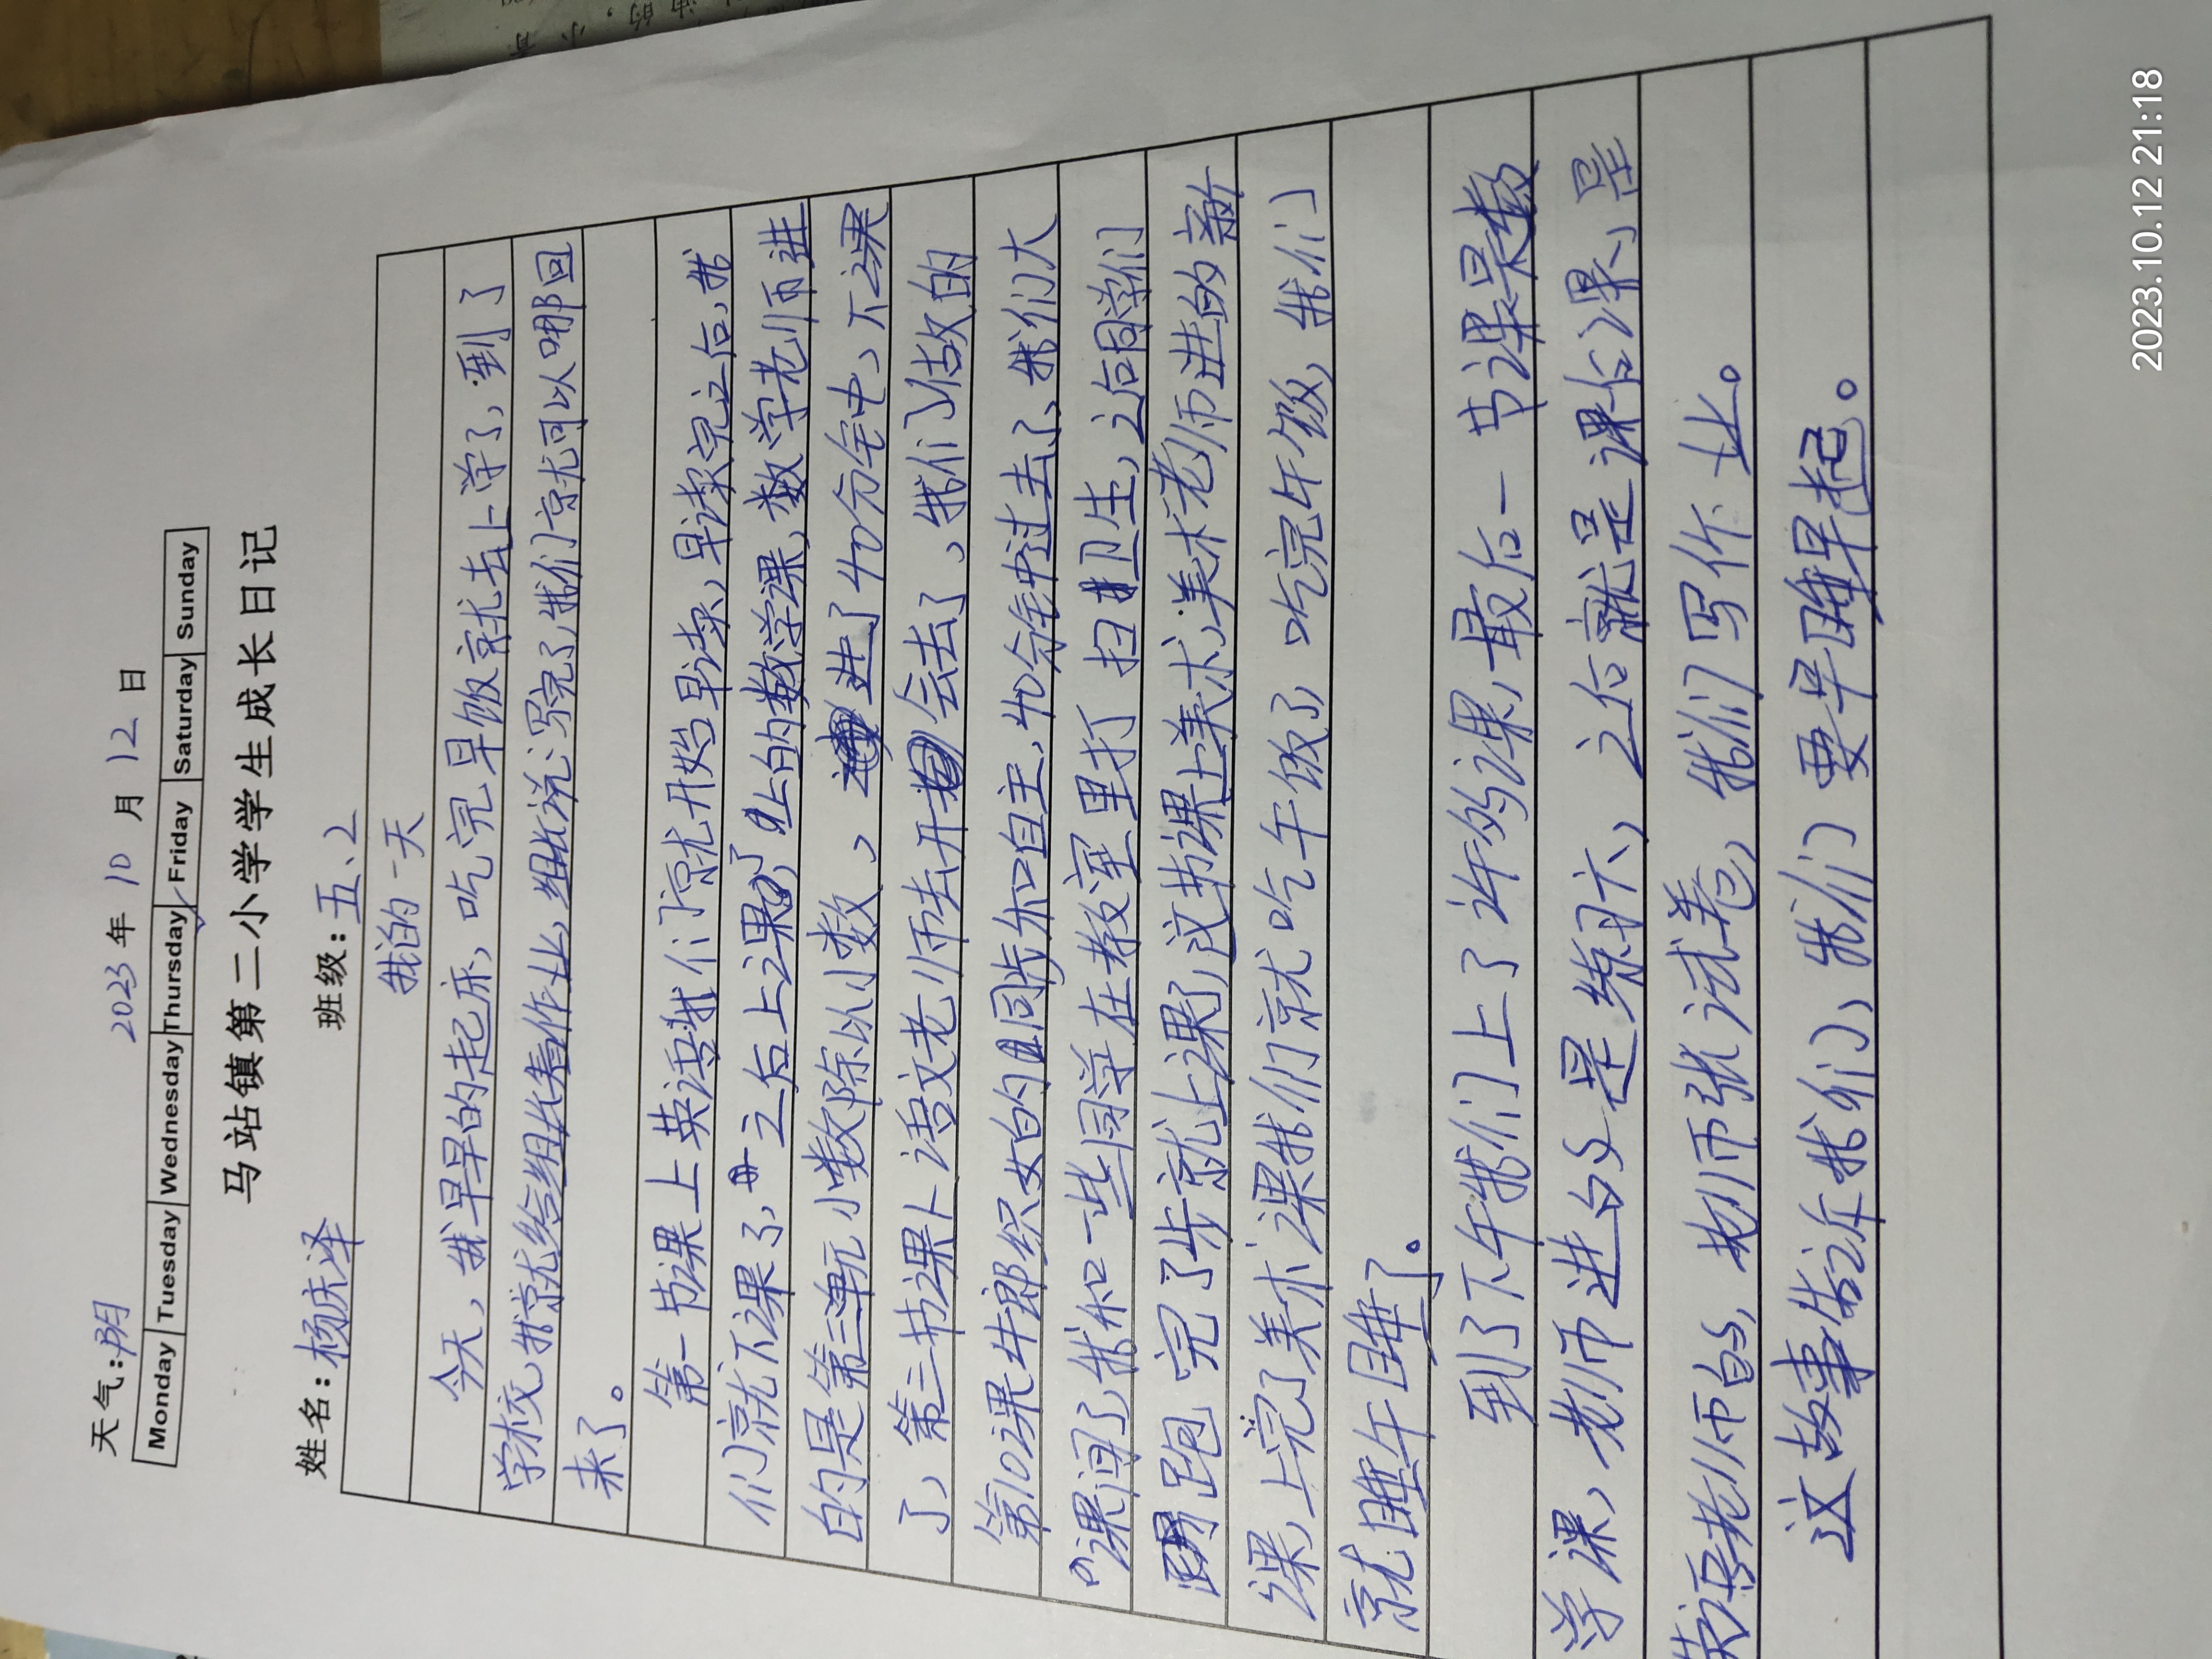 天气:阴 2023年10月12日
Monday Tuesday Wednesday Thursday Friday Saturday Sunday
马站镇第二小学学生成长日记
姓名:杨庆泽 班级:五、2
我的一天
今天,我早早的起床,吃完早饭就去上学了,到了
学校,我就给组长看作业,组长说:写完了,我们就可以哪回
来了。
第一节课上英语我们就开始早读,早读完之后,我
们就下课了,之后上课了,上的数学课,数学老师进
的是第三单元小数除以小数、进了40分钟、下课
了,第三节课上语文老师去开会去了、我们估故的
第10课牛郎织女的同步和自主,40分钟过去了,我们大
课间了,我和一些同学在教室里打扫卫生,之向同学们
跑完了步就上课了,这节课上美术,美术老师进的新
课,上完了美术课我们就吃午饭了,吃完午饭,我们
就睡午睡了。
到了下午我们上了许多的课,最后一节课是数
学课,老师进的是练习六,之后就是课后课,是
英语老师的,老师张试卷,我们写作业。
这故事告诉我们,我们要早睡早起。
2023.10.12 21:18